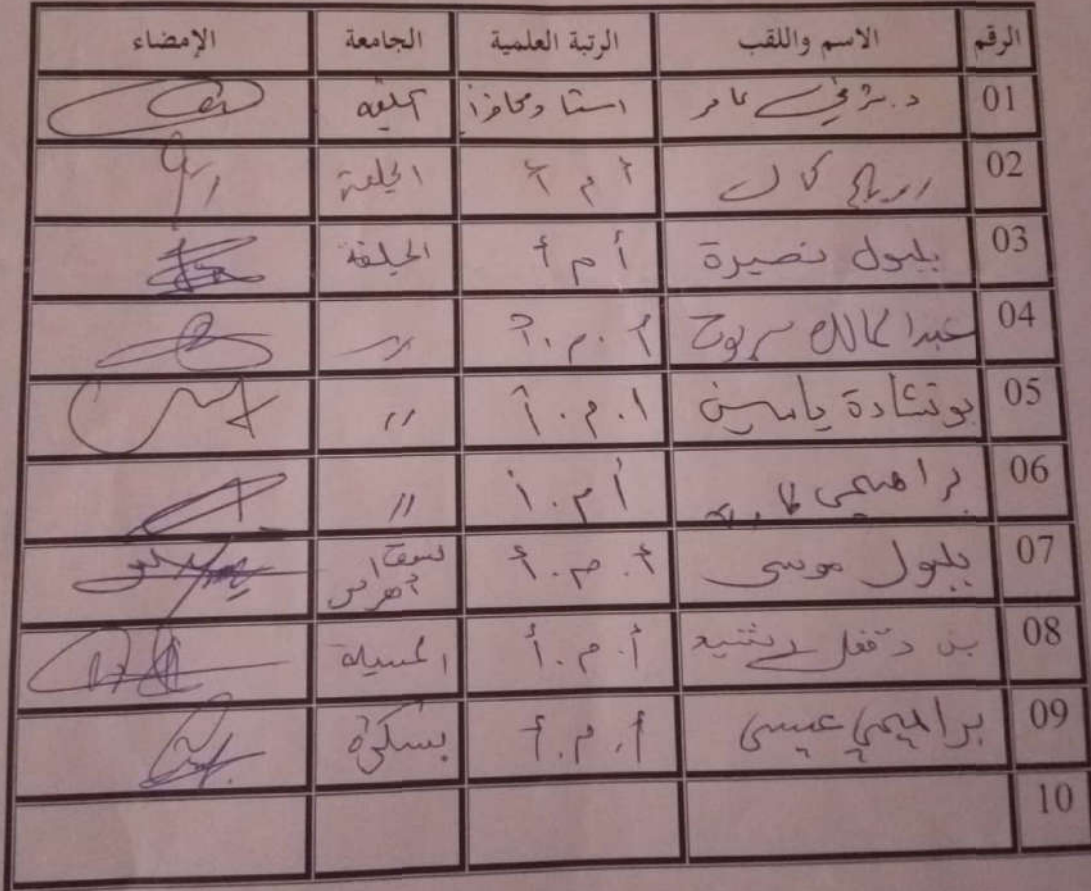 الرقم الاسم واللقب الرتبة العلمية الجامعة الإمضاء
01 د. عامر استاذ محاضر أ الجلفة
02 كمال أ م أ الجلفة
03 بلبول نصيرة أ م أ الجلفة
04 عبد المالك سربوح أ . م . أ //
05 بوتشادة ياسين ا . م . أ //
06 براهيمي أ م . أ //
07 بلبول موسى أ . م . أ سوق أهراس
08 بن دقفل رشيد أ . م . أ المسيلة
09 براهيمي عيسى أ . م . أ بسكرة
10